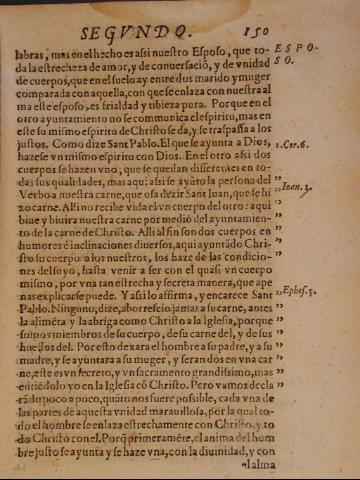 SEGVNDO. 150
ESPO-
SO.
labras, mas en el hecho es assi nuestro Esposo, que to-
da la estrecheza de amor, y de conuersació, y de vnidad
de cuerpos, que en el suelo ay entre dos marido y muger
comparada con aquella, con que se enlaza con nuestra al
ma este esposo, es frialdad y tibieza pura. Porque en el
otro ayuntamiento no se communica el spiritu, mas en
este su mismo espiritu de Christo se da, y se traspassa a los
justos. Como dize Sant Pablo. El que se ayunta a Dios,
hazese vn mismo espiritu con Dios. En el otro assi dos
cuerpos se hazen vno, que se quedan differentes en to-
das sus qualidades, mas aqui assi se ayũto la persona del
Verbo a nuestra carne, que osa dezir Sant Iuan, que se hi
zo carne. Alli no recibe vida el vn cuerpo del otro: aqui
biue y biuira nuestra carne por medio del ayuntamien-
to de la carne de Christo. Alli al fin son dos cuerpos en
humores è inclinaciones diuersos, aqui ayuntãdo Chri-
sto su cuerpo a los nuestros, los haze de las condicio-
nes del suyo, hasta venir a ser con el quasi vn cuerpo
mismo, por vna tan estrecha y secreta manera, que ape
nas explicarse puede. Y assi lo affirma, y encarece Sant
Pablo. Ninguno, dize, aborrescio jamas a su carne, antes
la alimẽta y la abriga como Christo a la Iglesia, porque
somos miembros de su cuerpo, de su carne del, y de sus
huessos del. Por esto dexara el hombre a su padre, y a su
madre, y se ayuntara a su muger, y seran dos en vna car
ne, este es vn secreto, y vn sacramento grandissimo, mas
entiẽdolo yo en la Iglesia cõ Christo. Pero vamos decla
rãdo poco a poco, quãto nos fuere possible, cada vna de
las partes de aquesta vnidad marauillosa, por la qual to-
do el hombre se enlaza estrechamente con Christo, y to
do Christo con el. Porq̃ primeramẽte, el anima del hom
bre justo se ayunta y se haze vna, con la diuinidad, y con
el alma
1. Cor. 6.
Ioan. 1.
Ephes. 5.